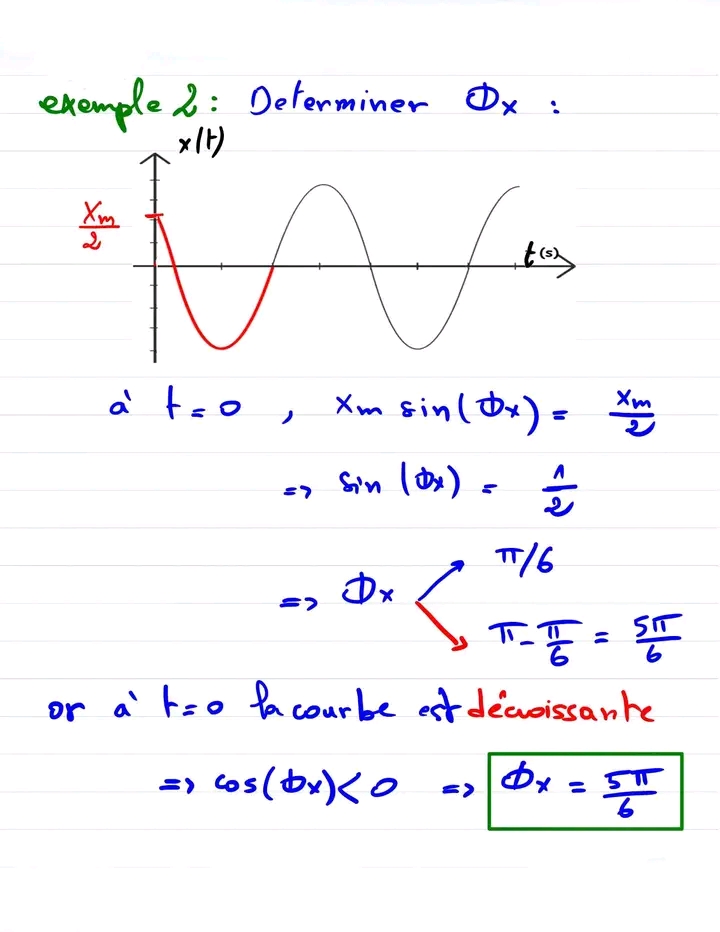 exemple 2 : Determiner Φx :
x(t)
Xm/2
t (s)
à t = 0 , Xm sin(Φx) = Xm/2
=> sin (Φx) = 1/2
=> Φx π/6
π - π/6 = 5π/6
or à t=0 la courbe est décroissante
=> cos(Φx) < 0 => Φx = 5π/6